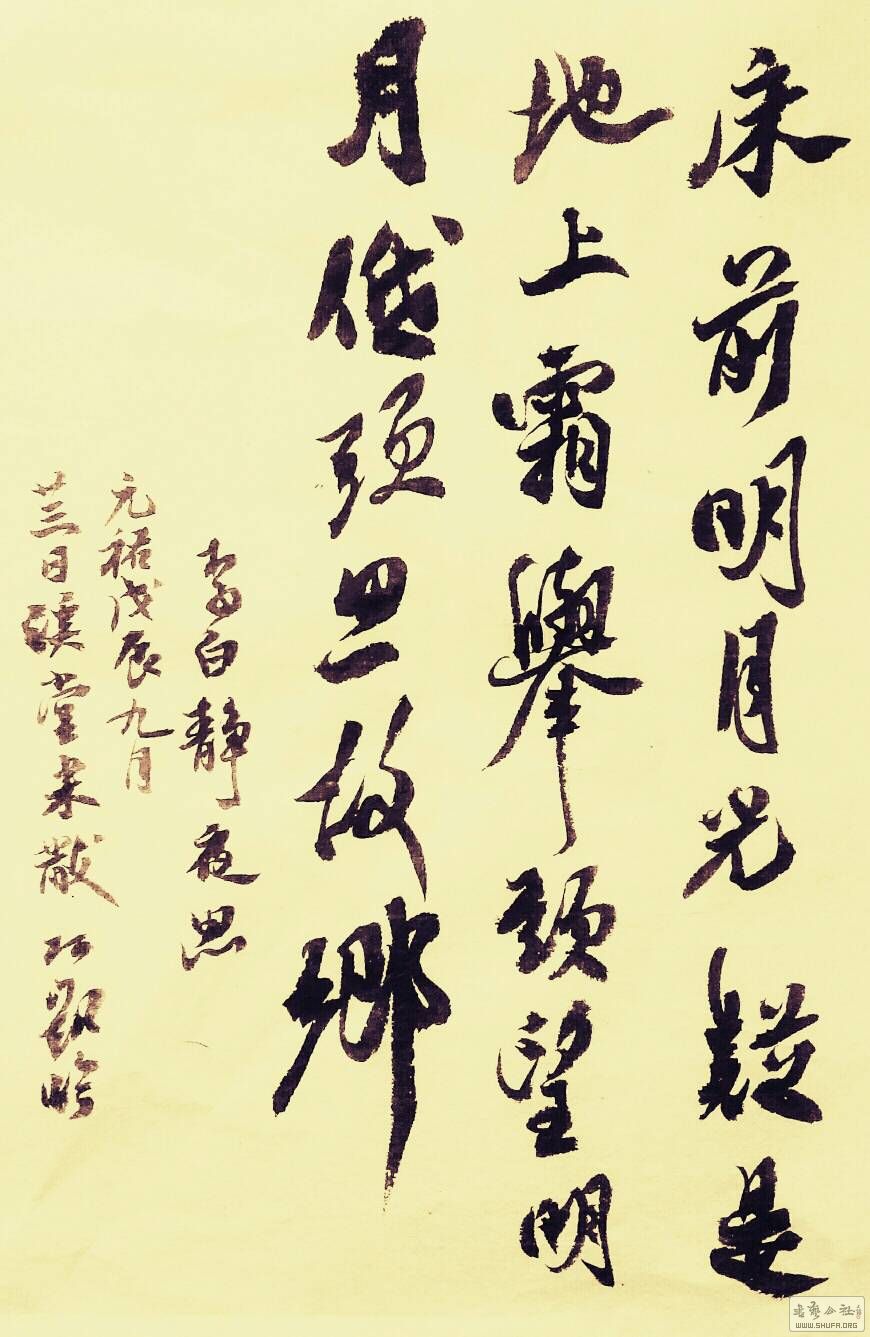 床前明月光疑是
地上霜舉頭望明
月低頭思故鄉
李白静夜思
元祐戊辰九月
廿三日溪堂米黻
書藝公社
WWW.SHUFA.ORG